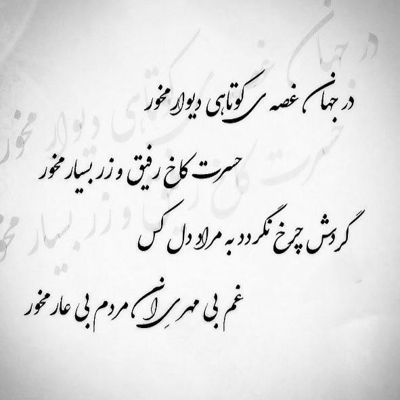 در جهان غصه ی کوتاهی دیوار مخور
حسرت کاخ رفیق و زر بسیار مخور
گردش چرخ نگردد به مراد دل کس
غم بی مهری آن مردم بی عار مخور